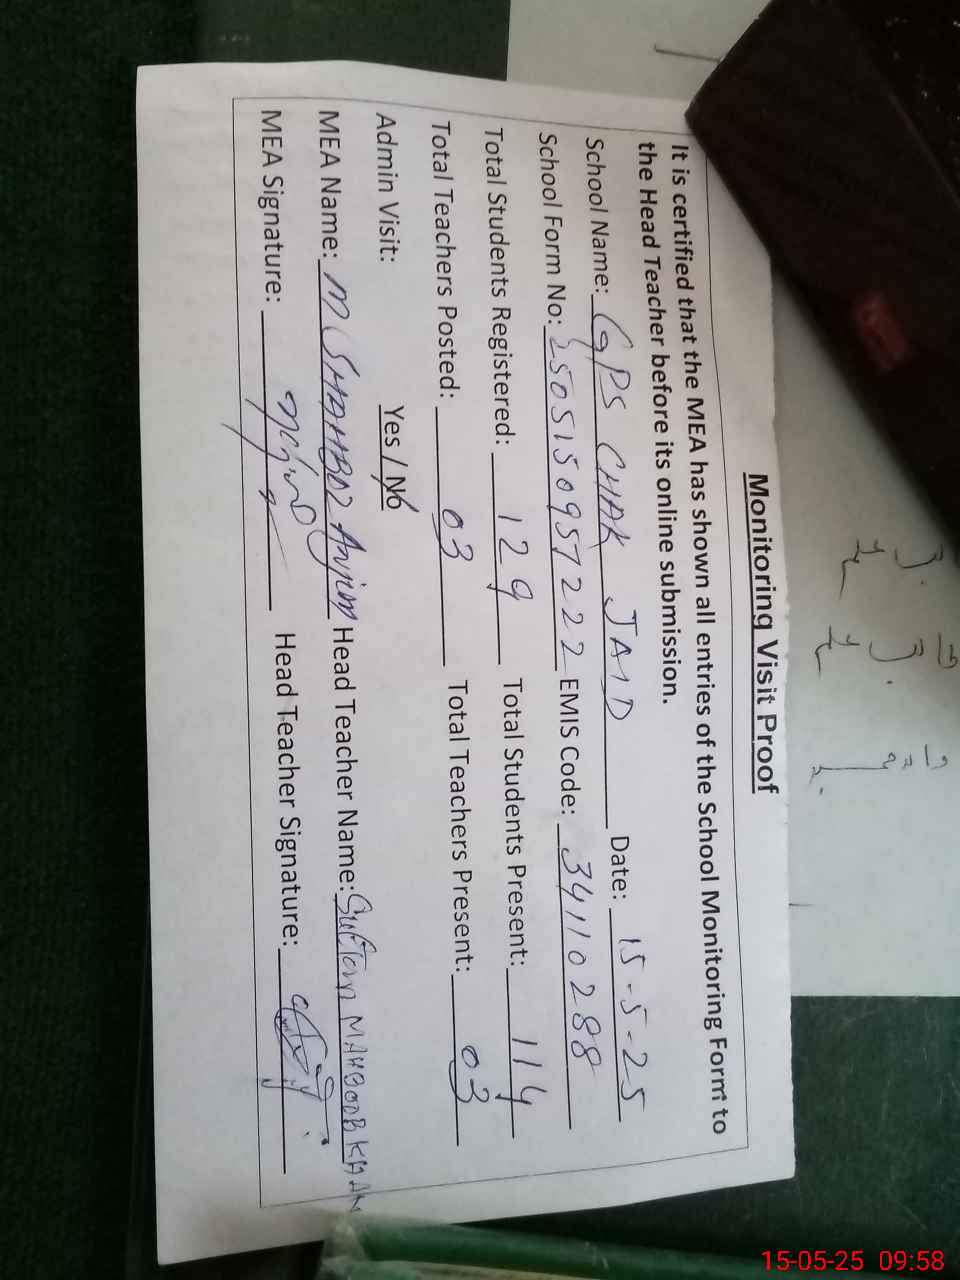 Monitoring Visit Proof
It is certified that the MEA has shown all entries of the School Monitoring Form to
the Head Teacher before its online submission.
School Name: GPS CHAK JAID Date: 15-5-25
School Form No: 2505150957222 EMIS Code: 34110288
Total Students Registered: 129 Total Students Present: 114
Total Teachers Posted: 03 Total Teachers Present: 03
Admin Visit: Yes / No
MEA Name: M SHAHBAZ Anjum Head Teacher Name: Sultan MAHBOOB KHAN
MEA Signature: Head Teacher Signature:
15-05-25 09:58